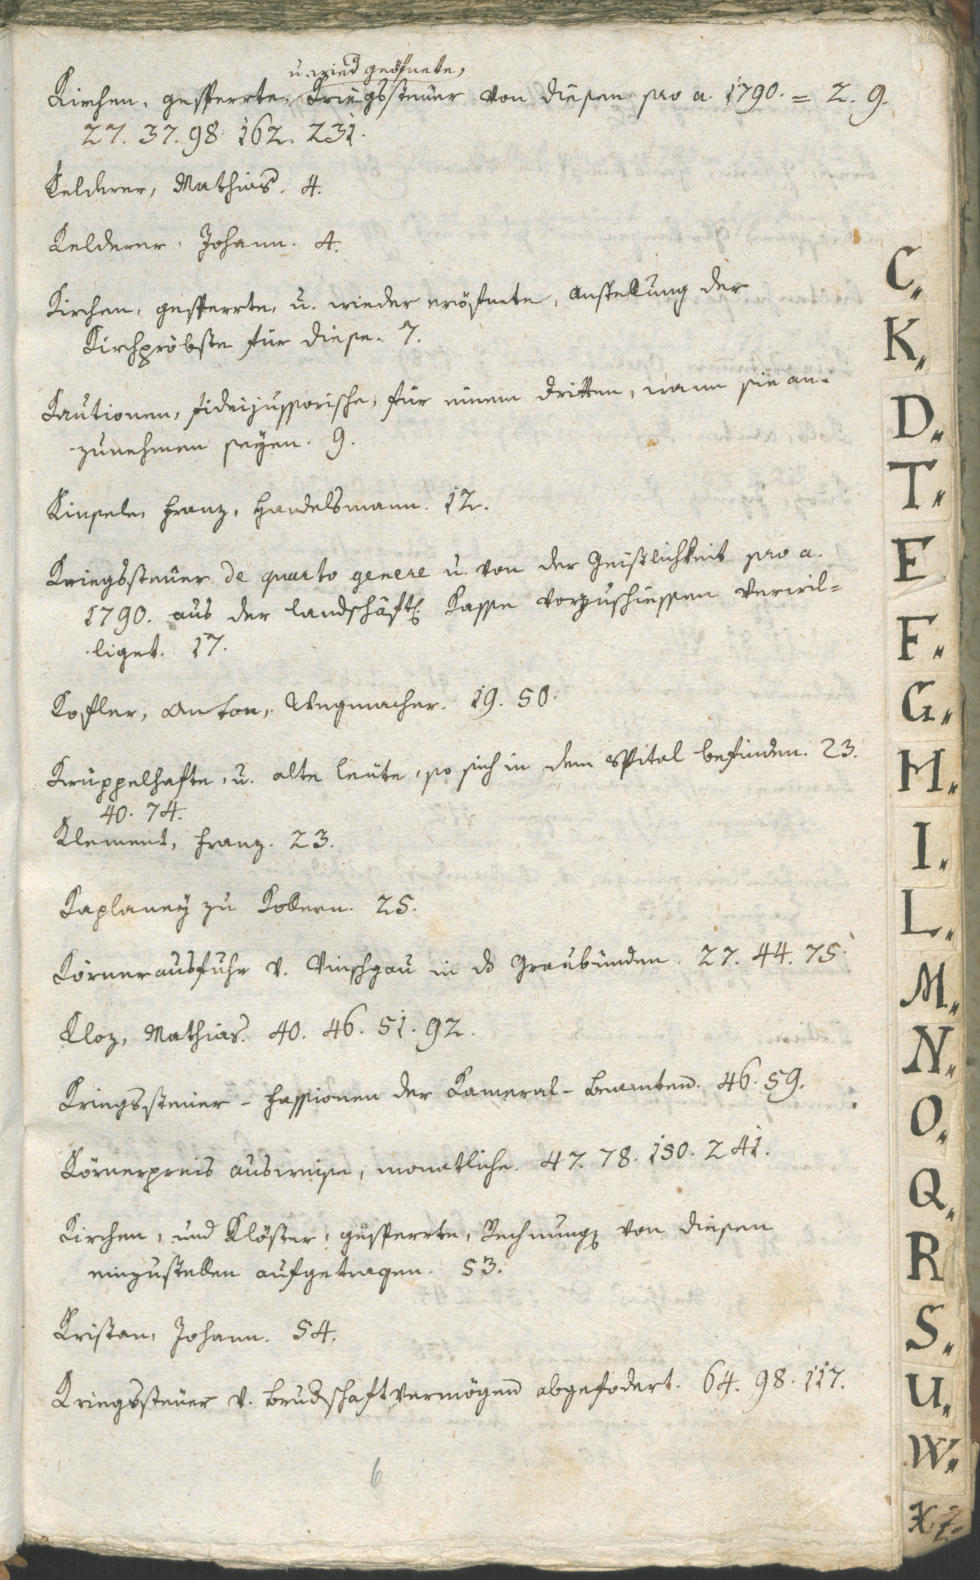 u. wied geöfnete,
Kirchen, gesperrte, Kriegssteuer von diesen pro a. 1790. = 2. 9.
27. 37. 98. 162. 231.
Kelderer, Mathias. 4.
Kelderer, Johann. 4.
Kirchen, gesperrte, u. wieder eröfnete, anstellung der
Kirchpröbste für diese. 7.
Kautionen, fideijussorische, für einem dritten, wann sie an-
zunehmen seyen. 9.
Kinsele, Franz, Handelsmann. 12.
Kriegssteuer de quarto genere u. von der Geistlichkeit pro a.
1790. aus der landschäftl. Kasse vorzuschiessen verwil=
liget. 17.
Kofler, Anton, Wegmacher. 19. 50.
Krüppelhafte, u. alte leute, so sich in dem Spital befinden. 23.
40. 74.
Klement, Franz. 23.
Kaplaney zu Kobern. 25.
Körnerausfuhr v. Vinschgau in d Graubünden. 27. 44. 75.
Kloz, Mathias. 40. 46. 51. 92.
Kriegssteuer - Fassionen der Kameral - Beamten. 46. 59.
Körnerpreis ausweise, monatliche. 47. 78. 150. 241.
Kirchen, und Klöster, gesperrte, Rechnung von diesen
einzustellen aufgetragen. 53.
Kristan, Johann. 54.
Kriegssteuer v. Brudschaftvermögen abgefodert. 64. 98. 117.
6
C.
K.
D.
T.
E
F.
G.
H.
I.
L.
M.
N.
O.
Q.
R
S.
U.
W.
X. Z.